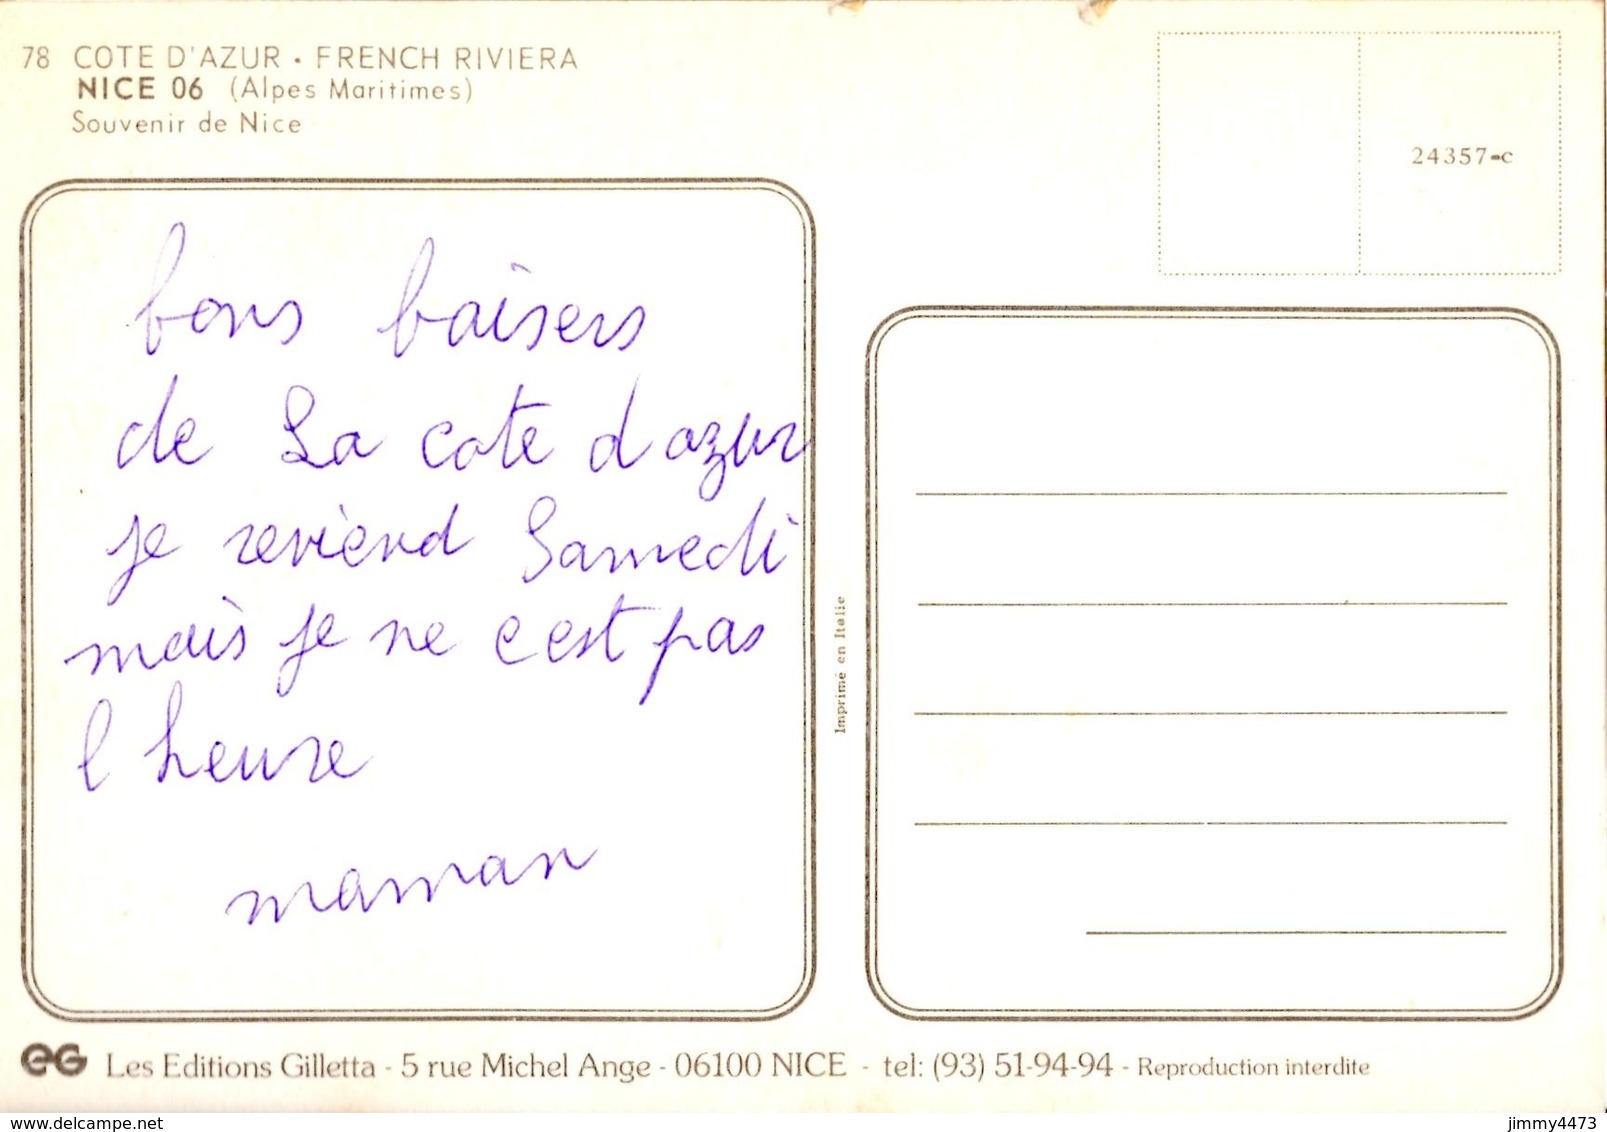 78 COTE D'AZUR • FRENCH RIVIERA
NICE 06 (Alpes Maritimes)
Souvenir de Nice
24357-c
bons baisers
de La cote d azur
je reviend Samedi
mais je ne c est pas
l heure
maman
Imprimé en Italie
eG Les Editions Gilletta - 5 rue Michel Ange - 06100 NICE - tel: (93) 51-94-94 - Reproduction interdite
delcampe.net
jimmy4473